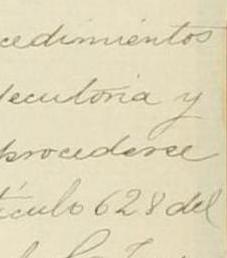 cedimientos
jecutoria y
procederse
tículo 628 del